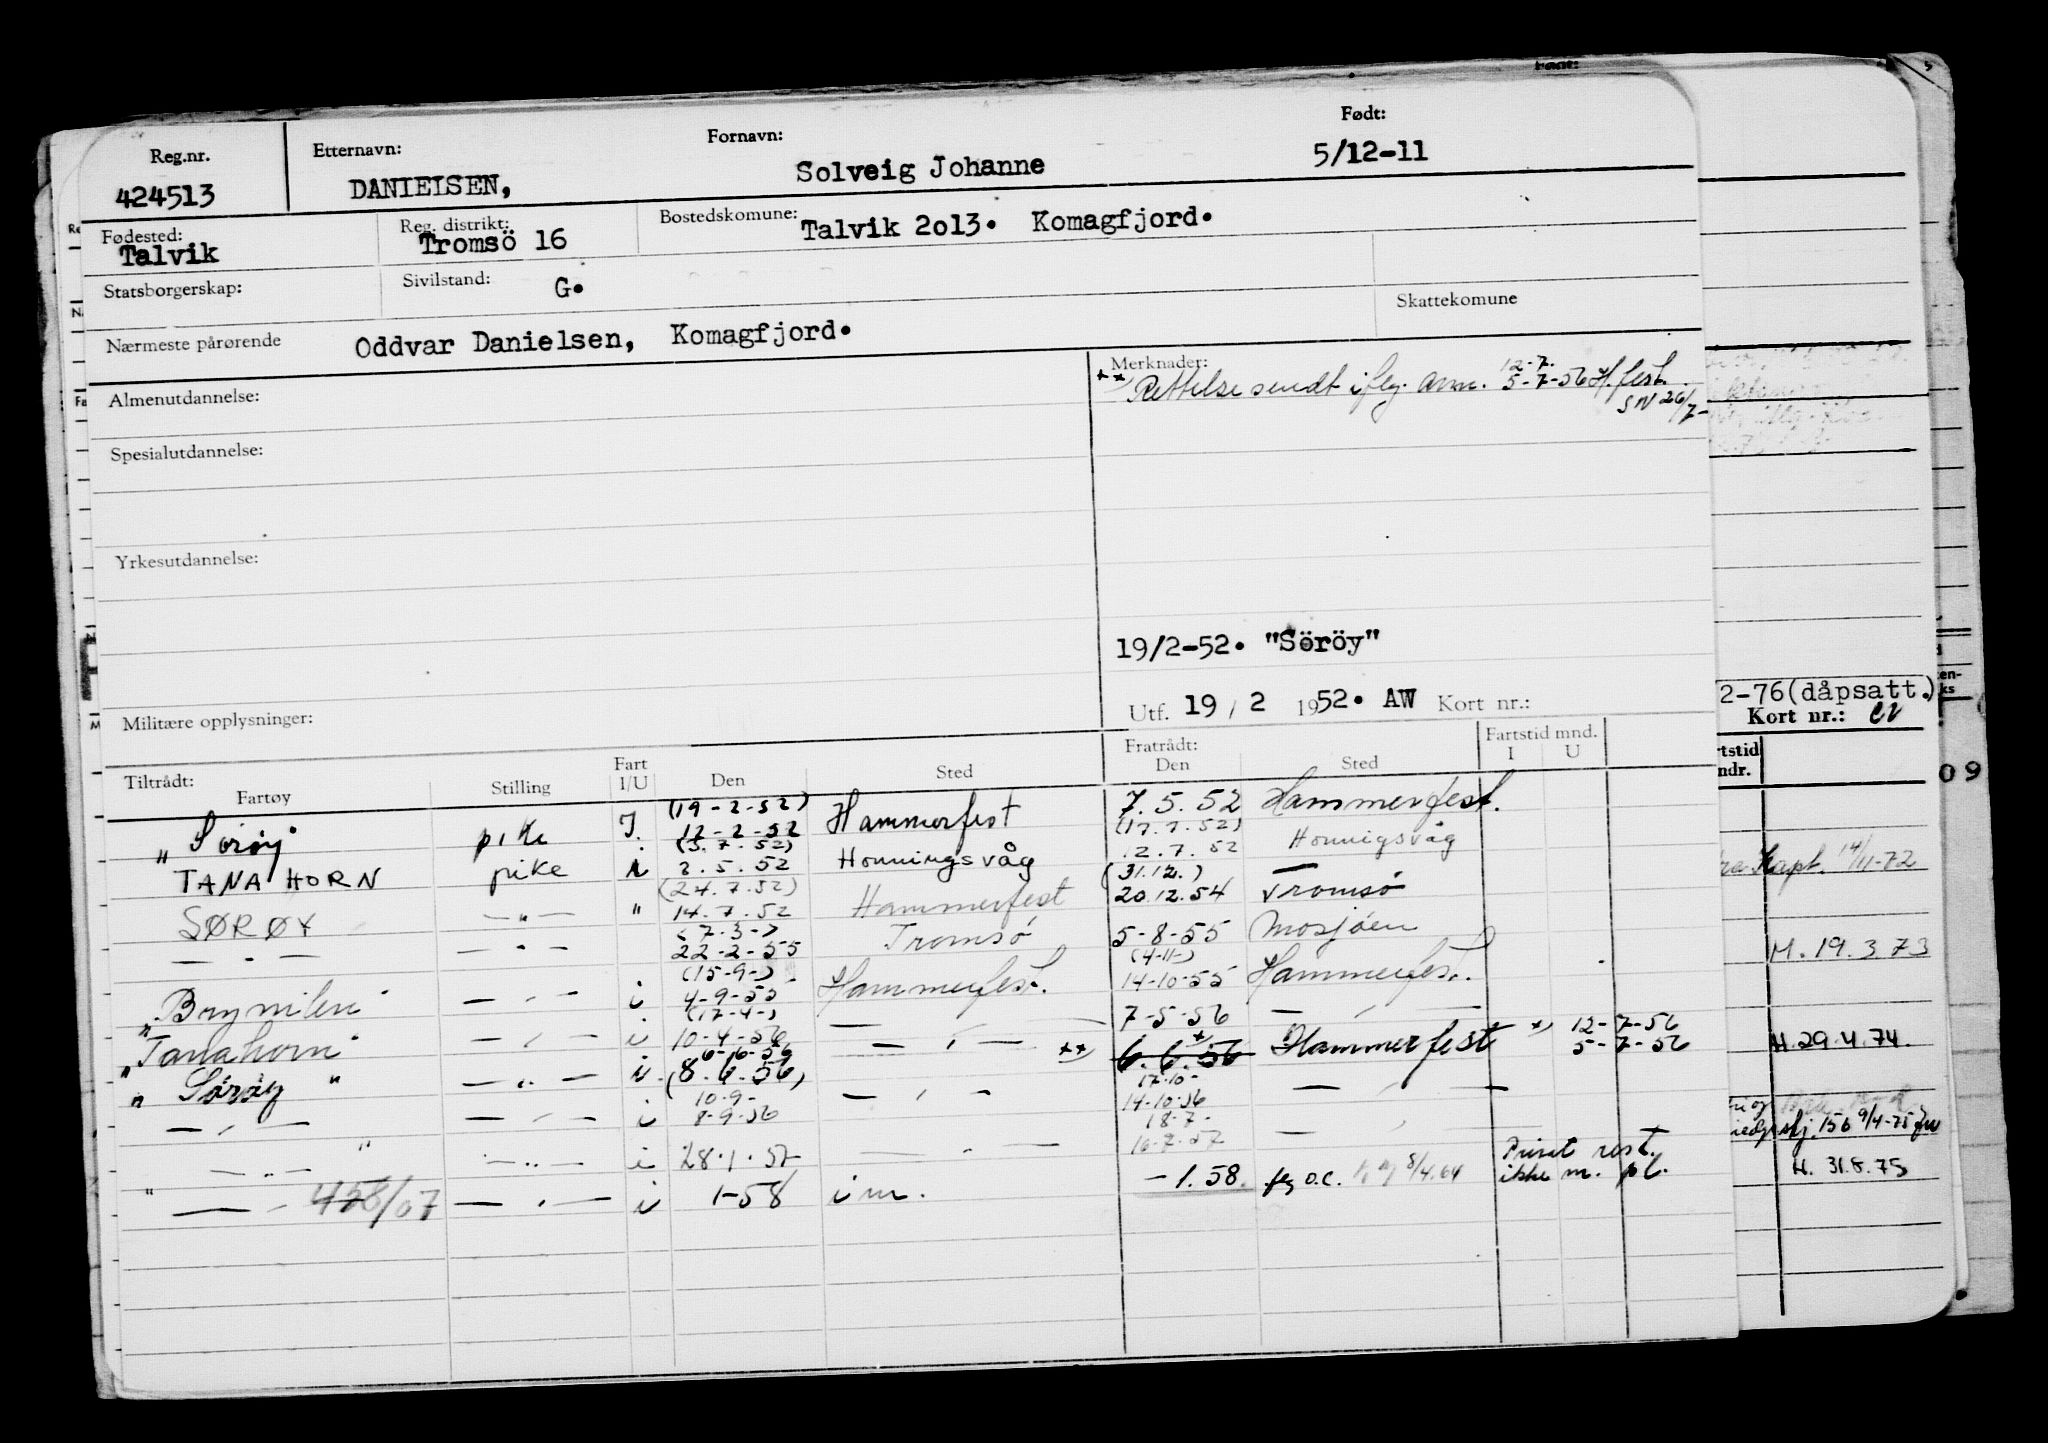 Reg.nr. Etternavn: Fornavn: Født:
424513 DANIEISEN, Solveig Johanne 5/12-11
Fødested: Talvik Reg. distrikt: Tromsö 16 Bostedskomune: Talvik 2o13. Komagfjord.
Statsborgerskap: Sivilstand: G. Skattekomune
Nærmeste pårørende Oddvar Danielsen, Komagfjord.
Almenutdannelse: Merknader:
12-7.
** Rettelse sendt iflg. anm. 5-7-56 H.fest.
SN 26/7-
Spesialutdannelse:
Yrkesutdannelse:
19/2-52. "Söröy"
Militære opplysninger: Utf. 19 / 2 1952. AW Kort nr.:
Tiltrådt: Fart Fratrådt: Fartstid mnd.
Fartøy Stilling I/U Den Sted Den Sted I U
(19-2-52)
"Sørøy" pike I. 12-2-52 Hammerfest 7.5.52 Hammerfest.
(3.7.52) (17.7.52)
TANAHORN pike i 2.5.52 Honningsvåg 12.7.52 Honnigsvåg
(24.7.52) (31.12.)
SØRØY —"— " 14.7.52 Hammerfest 20.12.54 Tromsø
27-3-
— " — — " — 22-2-55 Tromsø 5-8-55 Mosjøen
(15-9-) (4-11-)
"Brynilen" — " — i 4-9-55 Hammerfest. 14-10-55 Hammerfest.
(17-4-)
"Tanahorn" — " — i 10-4-56 — " — 7-5-56 — " —
6-6-56
"Sørøy" — " — i (8.6.56) — " — ** 6.6.56 * Hammerfest *) 12-7-56
5-7-56
10-9- 17-10-
— " — — " — i 8-9-56 — " — 14-10-56 — " —
18-7-
— " — — " — i 28.1.57 — " — 16-7-57 — " —
— " — 458/07 — " — i 1-58 i m. — 1.58. flg O.C. 8/4.64 Privat rest. ikke m. pl.
2-76(dåpsatt.)
Kort nr.:
rtstid
ndr.
09
Kapt. 14/11-72
M. 19.3.73
H. 29.4.74.
sj. 156 9/4-75
H. 31.8.75